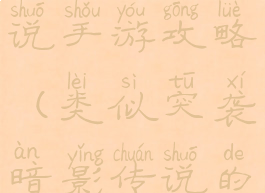 shuō shǒu yóu gōng lüè
说手游攻略
lèi sì tū xí
（类似突袭
àn yǐng chuán shuō de
暗影传说的